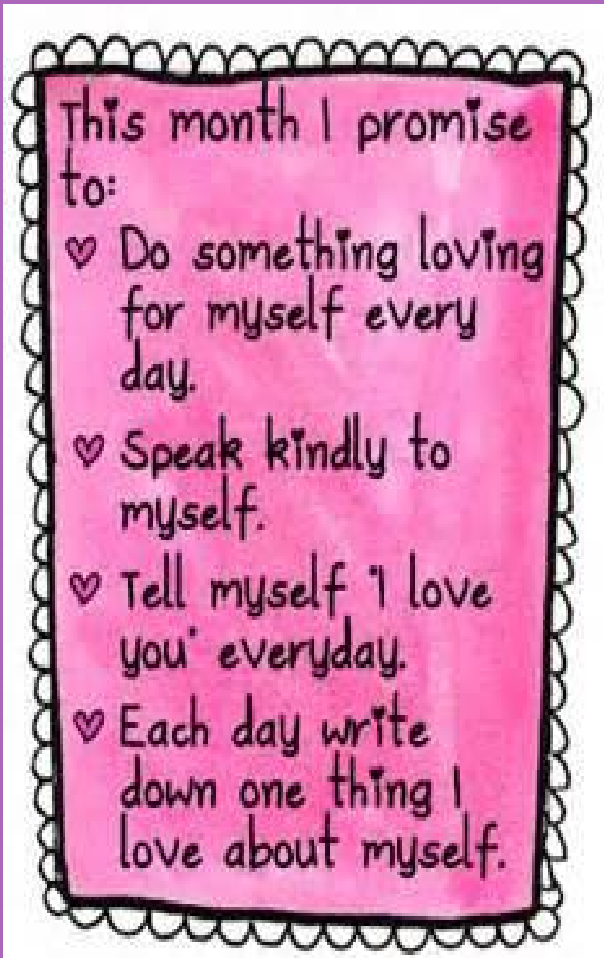 This month I promise
to:
♡ Do something loving
for myself every
day.
♡ Speak kindly to
myself.
♡ Tell myself "I love
you" everyday.
♡ Each day write
down one thing I
love about myself.